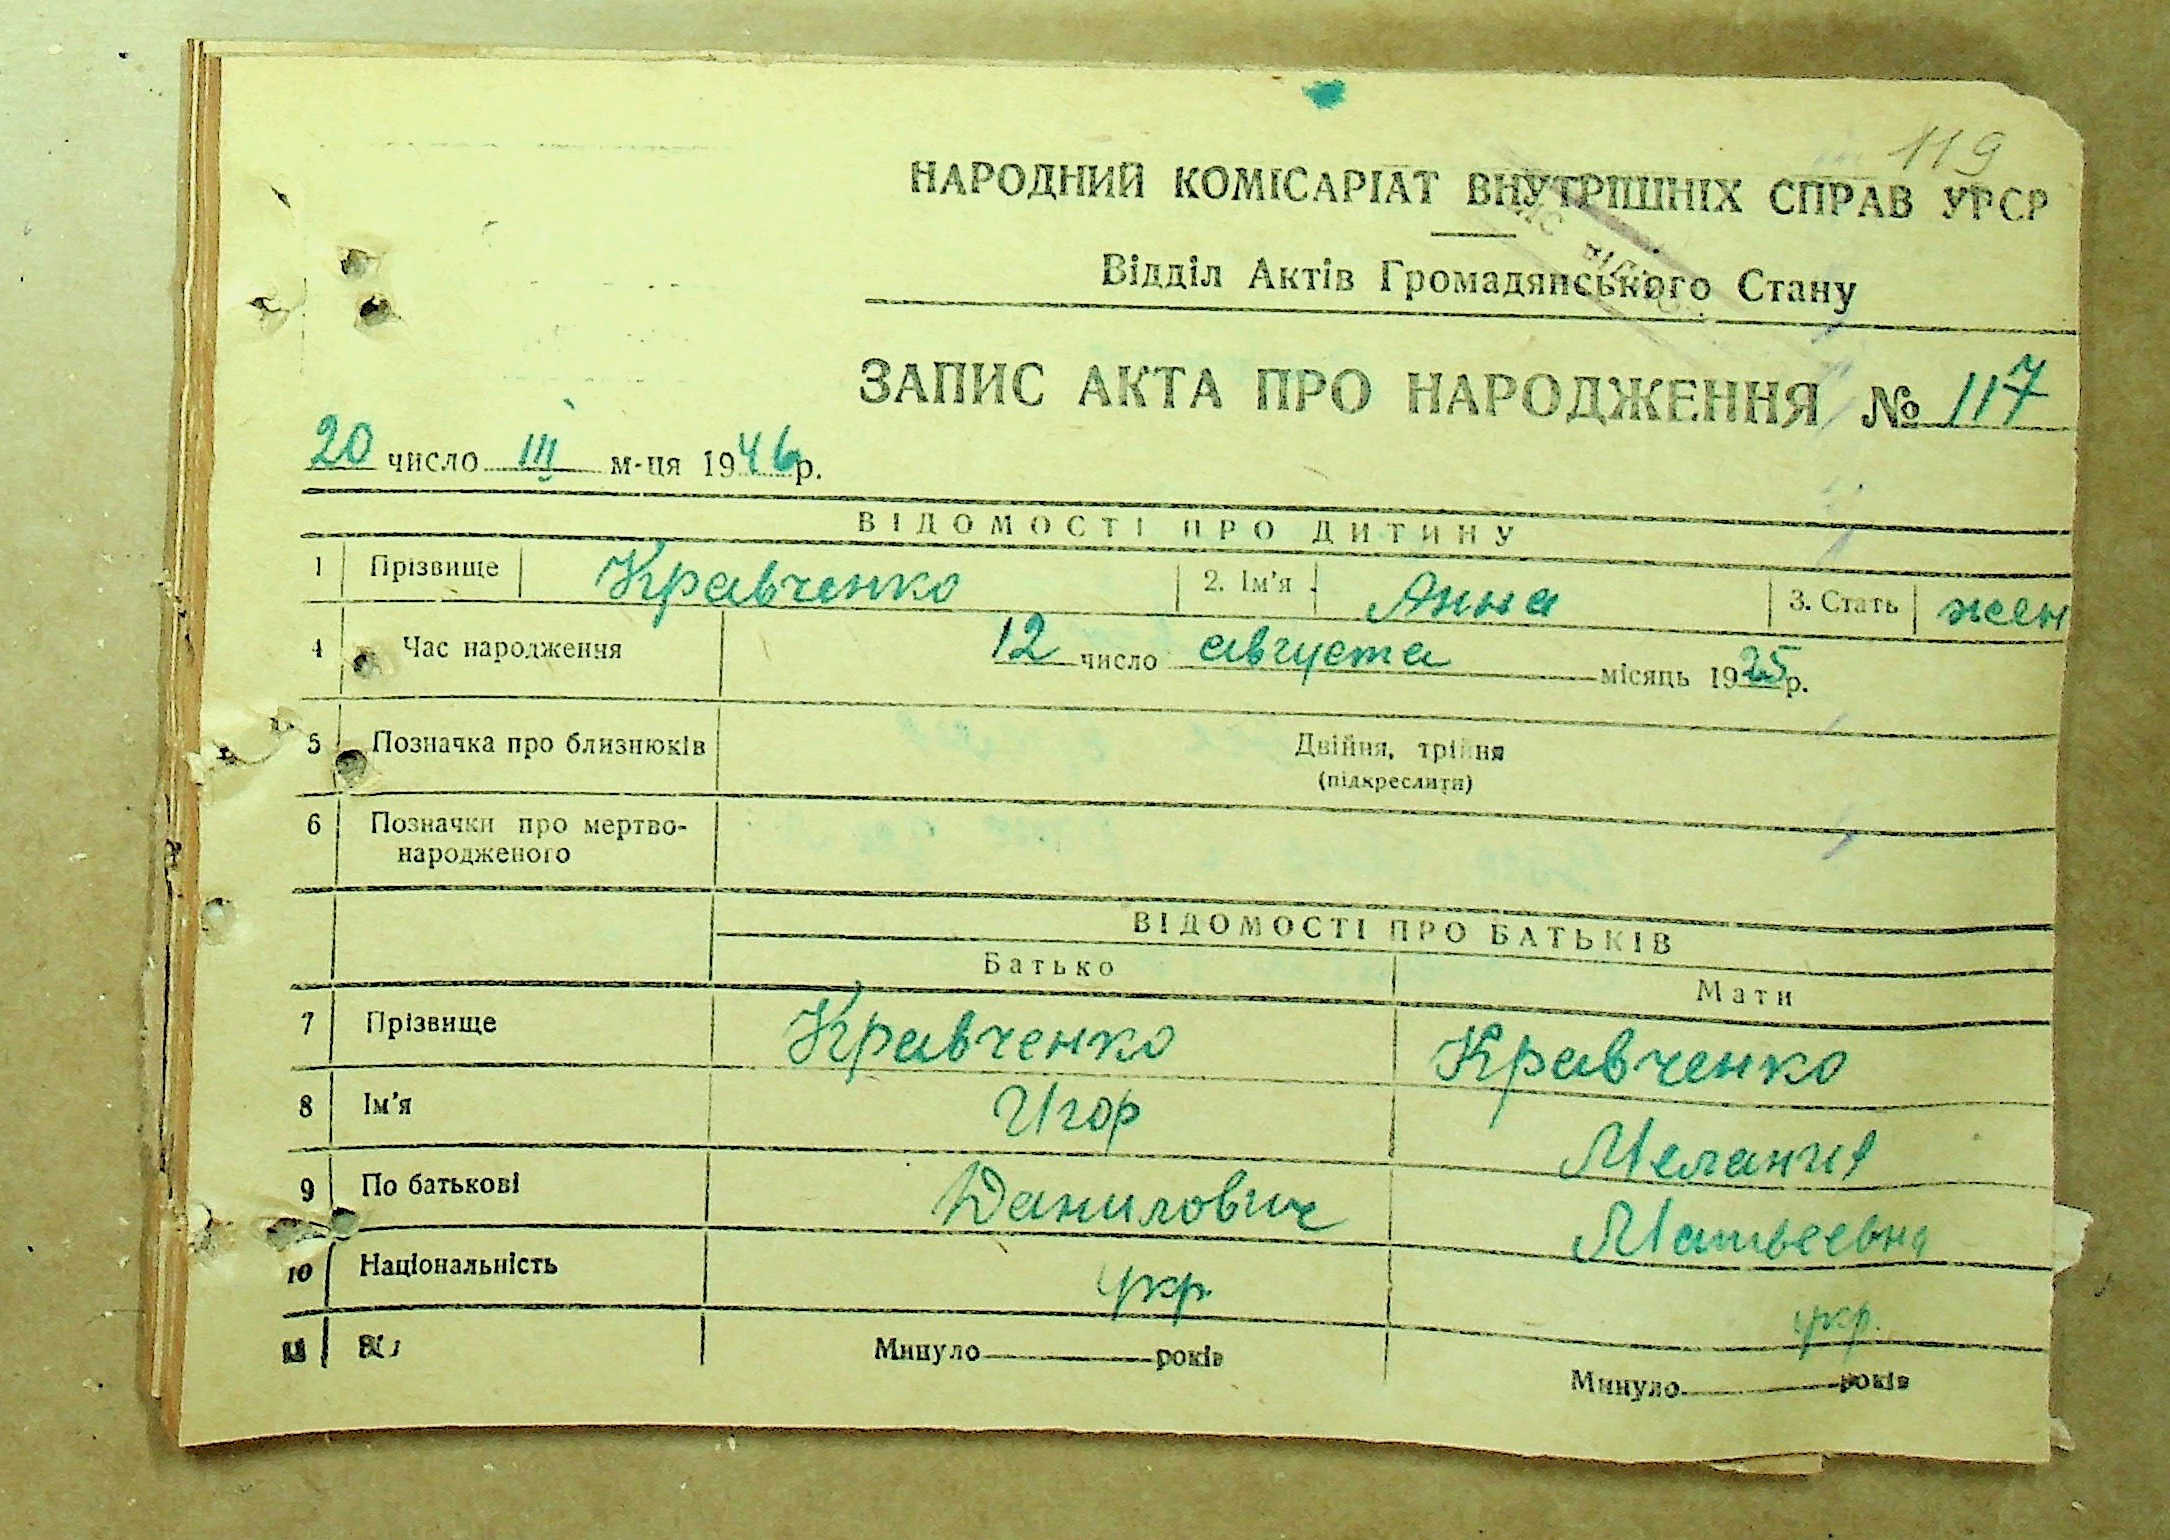 119
НАРОДНИЙ КОМІСАРІАТ ВНУТРІШНІХ СПРАВ УРСР
Відділ Актів Громадянського Стану
ЗАПИС АКТА ПРО НАРОДЖЕННЯ № 117
20 число III м-ця 1946 р.
ВІДОМОСТІ ПРО ДИТИНУ
1 Прізвище Кравченко 2. Ім'я Анна 3. Стать жен
4 Час народження 12 число августа місяць 1925 р.
5 Позначка про близнюків Двійня, трійня
(підкреслити)
6 Позначки про мертво-
народженого
ВІДОМОСТІ ПРО БАТЬКІВ
Батько Мати
7 Прізвище Кравченко Кравченко
8 Ім'я Игор Мелания
9 По батькові Данилович Матвеевна
10 Національність укр. укр.
11 Минуло років Минуло років